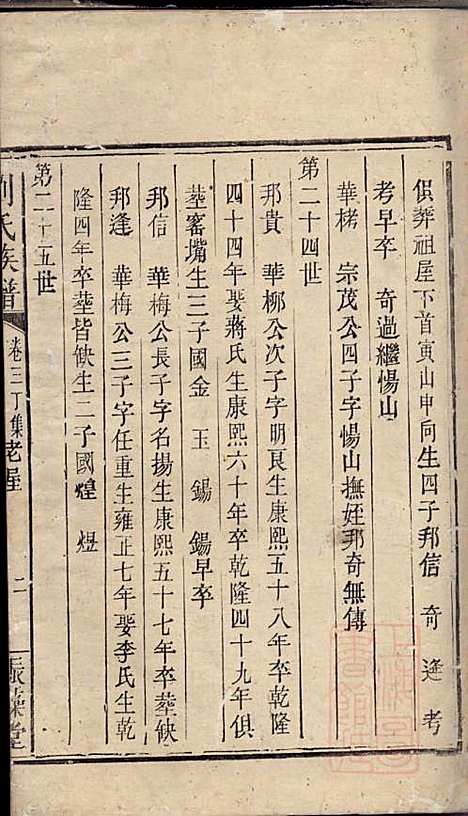 俱葬祖屋下首寅山申向生四子邦信 奇 逢 考
考早卒 奇過繼惕山
華栳 宗茂公四子字惕山撫姪邦奇無傳
第二十四世
邦貴 華柳公次子字明良生康熙五十八年卒乾隆
四十四年娶蔣氏生康熙六十年卒乾隆四十九年俱
塟窰嘴生三子國金 玉 錫 錫早卒
邦信 華梅公長子字名揚生康熙五十七年卒塟缺
邦逢 華梅公三子字任重生雍正七年娶李氏生乾
隆四年卒塟皆缺生二子國煌 煜
第二十五世
劉氏族譜 卷三丁集老屋 二 振藻堂
上海圖書館藏